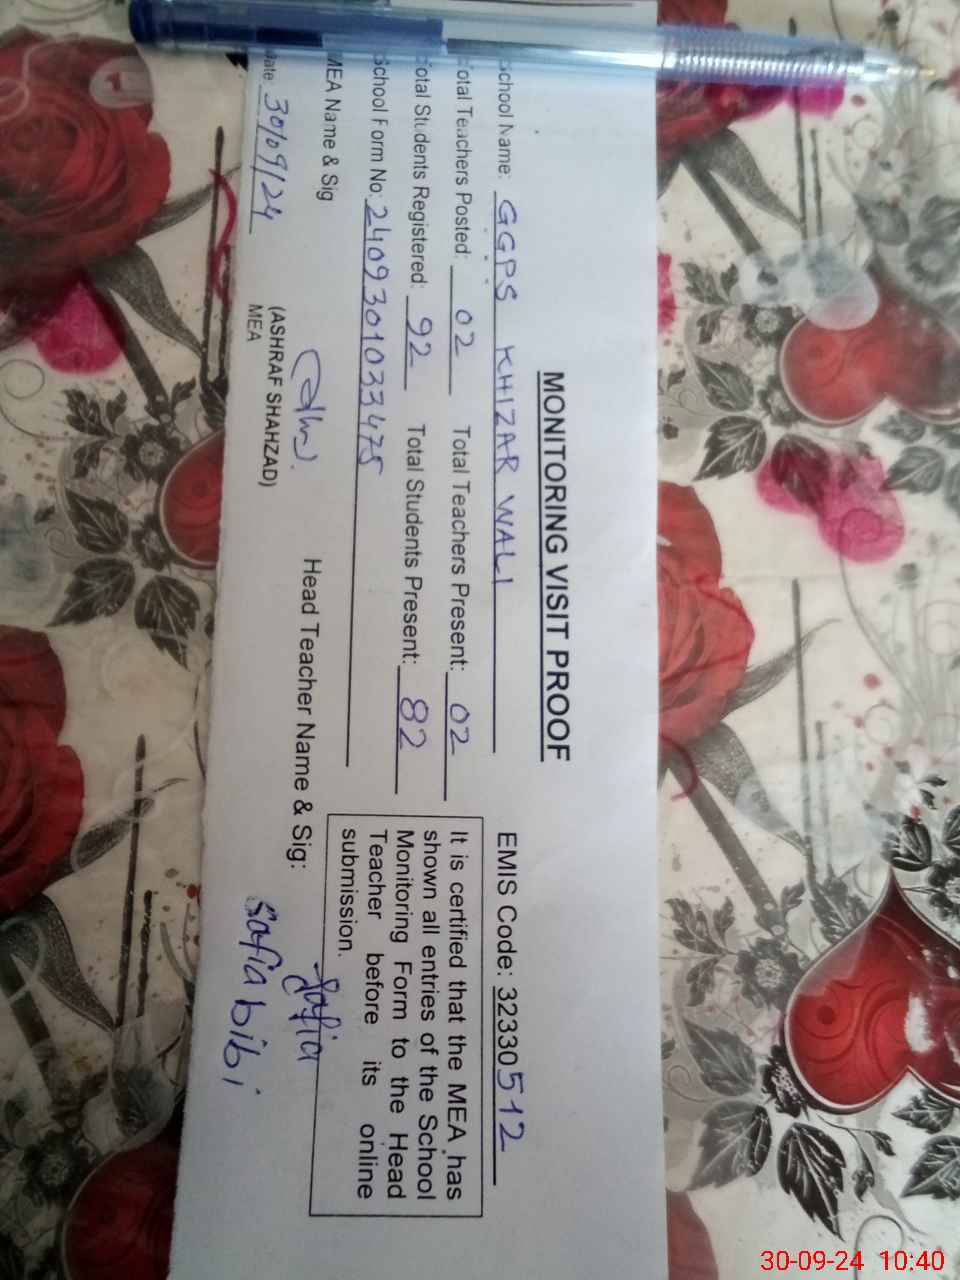 MONITORING VISIT PROOF
School Name: GGPS KHIZAR WALI EMIS Code: 32330512
Total Teachers Posted: 02 Total Teachers Present: 02
Total Students Registered: 92 Total Students Present: 82
School Form No: 2409301033475
It is certified that the MEA has
shown all entries of the School
Monitoring Form to the Head
Teacher before its online
submission.
MEA Name & Sig
Head Teacher Name & Sig: Safia
Safia bibi
(ASHRAF SHAHZAD)
MEA
Date 30/09/24
30-09-24 10:40